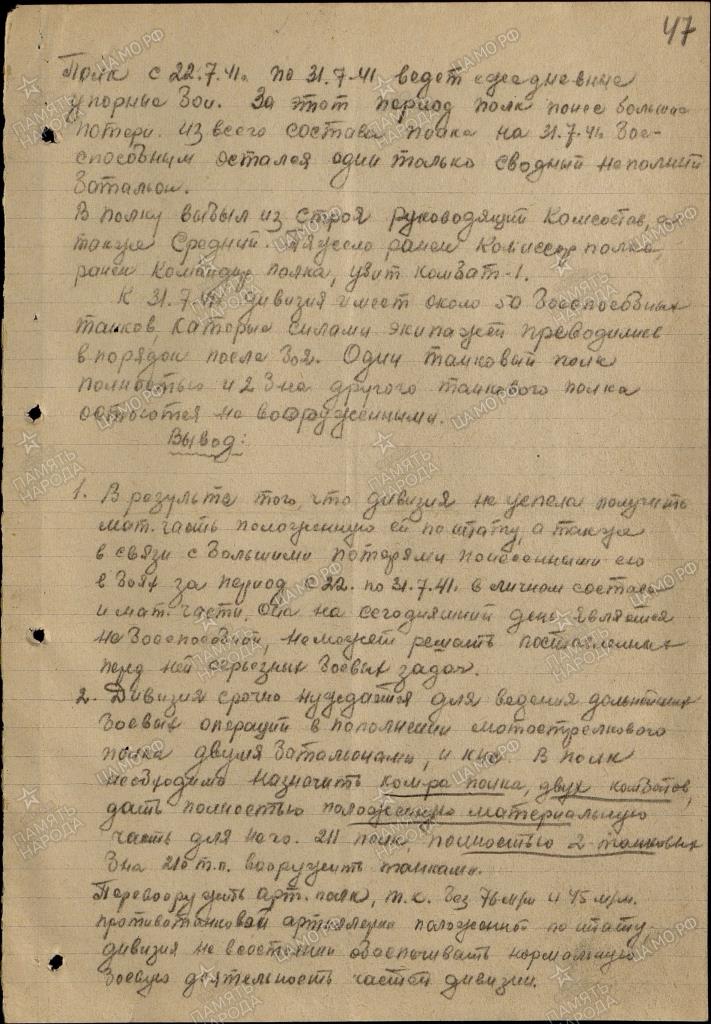 47
Полк с 22.7.41г. по 31.7.41 ведет ежедневные
упорные бои. За этот период полк понес большие
потери. из всего состава полка на 31.7.41г бое-
способным остался один только сводный неполный
батальон.
В полку выбыл из строя руководящий комсостав, а
также средний. Тяжело ранен Комиссар полка,
ранен Командир полка, убит комбат-1.
К 31.7.41 дивизия имеет около 50 боеспособных
танков, каторые силами экипажей преводились
в порядок после боя. Один танковый полк
полностью и 2 б-на другого танкового полка
остаются не вооруженными.
Вывод:
1. В результе того, что дивизия не успела получить
мат. часть положенную ей по штату, а также
в связи с большими потерями понесенными ею
в боях за период с 22. по 31.7.41г. в личном составе
и мат. части, она на сегодняшний день является
не боеспособной, не может решать поставленных
перед ней серьезных боевых задач.
2. Дивизия срочно нуждается для ведения дальнейших
боевых операций в пополнении мотострелкового
полка двумя батальонами, и нкс. В полк
необходимо назначить ком-ра полка, двух комбатов,
дать полностью положенную материальную
часть для него. 211 полк, полностью 2 танковых
б-на 210 т.п. вооружить танками.
Перевооружить арт. полк, т.к. без 76 м/м и 45 м/м.
противотанковой артиллерии положенной по штату
дивизия не всостоянии обеспечивать нормальную
боевую деятельность частей дивизии.
ПАМЯТЬ НАРОДА
ЦАМО.РФ